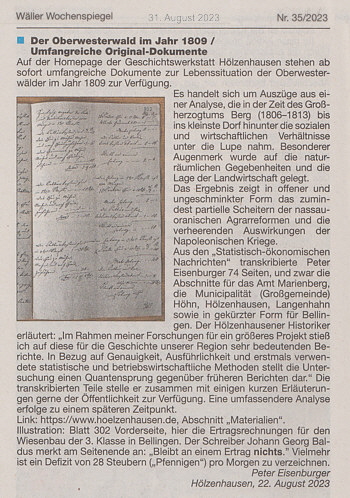 Wäller Wochenspiegel 31. August 2023 Nr. 35/2023
Der Oberwesterwald im Jahr 1809 /
Umfangreiche Original-Dokumente
Auf der Homepage der Geschichtswerkstatt Hölzenhausen stehen ab
sofort umfangreiche Dokumente zur Lebenssituation der Oberwester-
wälder im Jahr 1809 zur Verfügung.
Es handelt sich um Auszüge aus ei-
ner Analyse, die in der Zeit des Groß-
herzogtums Berg (1806–1813) bis
ins kleinste Dorf hinunter die sozialen
und wirtschaftlichen Verhältnisse
unter die Lupe nahm. Besonderer
Augenmerk wurde auf die natur-
räumlichen Gegebenheiten und die
Lage der Landwirtschaft gelegt.
Das Ergebnis zeigt in offener und
ungeschminkter Form das zumin-
dest partielle Scheitern der nassau-
oranischen Agrarreformen und die
verheerenden Auswirkungen der
Napoleonischen Kriege.
Aus den „Statistisch-ökonomischen
Nachrichten“ transkribierte Peter
Eisenburger 74 Seiten, und zwar die
Abschnitte für das Amt Marienberg,
die Municipalität (Großgemeinde)
Höhn, Hölzenhausen, Langenhahn
sowie in gekürzter Form für Bellin-
gen. Der Hölzenhausener Historiker
erläutert: „Im Rahmen meiner Forschungen für ein größeres Projekt stieß
ich auf diese für die Geschichte unserer Region sehr bedeutenden Be-
richte. In Bezug auf Genauigkeit, Ausführlichkeit und erstmals verwen-
dete statistische und betriebswirtschaftliche Methoden stellt die Unter-
suchung einen Quantensprung gegenüber früheren Berichten dar.“ Die
transkribierten Teile stelle er zusammen mit einigen kurzen Erläuterun-
gen gerne der Öffentlichkeit zur Verfügung. Eine umfassendere Analyse
erfolge zu einem späteren Zeitpunkt.
Link: https://www.hoelzenhausen.de, Abschnitt „Materialien“.
Illustration: Blatt 302 Vorderseite, hier die Ertragsrechnungen für den
Wiesenbau der 3. Klasse in Bellingen. Der Schreiber Johann Georg Bal-
dus merkt am Seitenende an: „Bleibt an einem Ertrag nichts.“ Vielmehr
ist ein Defizit von 28 Steubern („Pfennigen“) pro Morgen zu verzeichnen.
Peter Eisenburger
Hölzenhausen, 22. August 2023